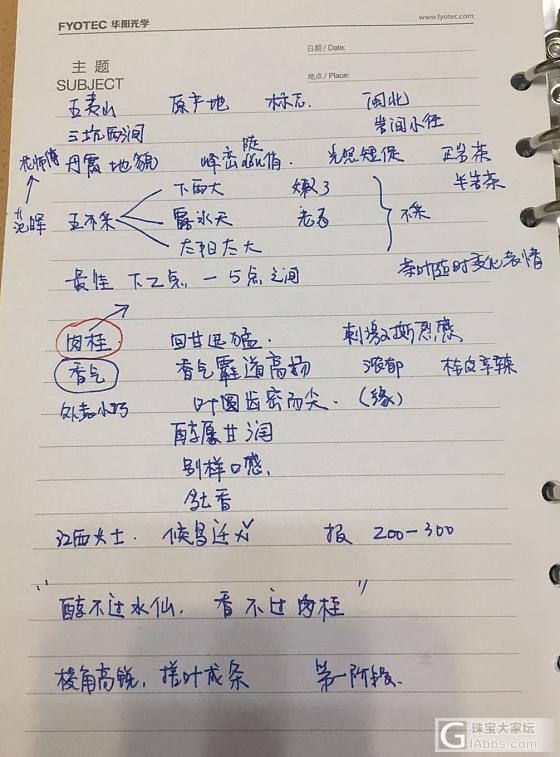 FYOTEC 华阳光学 www.fyotec.com
主题 日期 / Date:
SUBJECT 地点 / Place:
五夷山 原产地 标志. 闽北
三坑两涧 岩间小径
丹霞地貌 峰峦 陡 光照短 正岩茶
半岩茶
范晖 五不采 下雨天 嫩了 不采
露水天 老了
太阳太大 茶叶随时变化表情
最佳 下2点 — 5点之间
肉桂 回甘迅猛. 刺激 撕裂感
香气 香气霸道高扬 浓郁 桂皮辛辣
叶圆齿密而尖. (缘)
醇厚甘润
别样口感.
江西女士. 报 200-300
"醇不过水仙. 香不过肉桂"
棱角高锐, 搓叶成条 第一阶段.
珠宝大家坛
GIAbbs.com